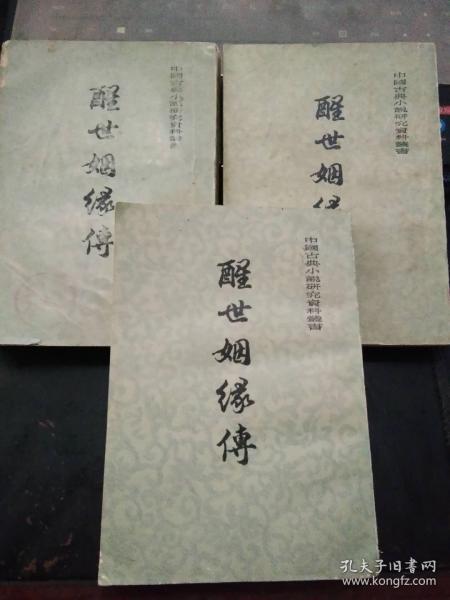 醒世姻緣傳
中國古典小說研究資料叢書
醒世姻緣
中國古典小說研究資料叢書
醒世姻緣傳
中國古典小說研究資料叢書
孔夫子旧书网
www.kongfz.com